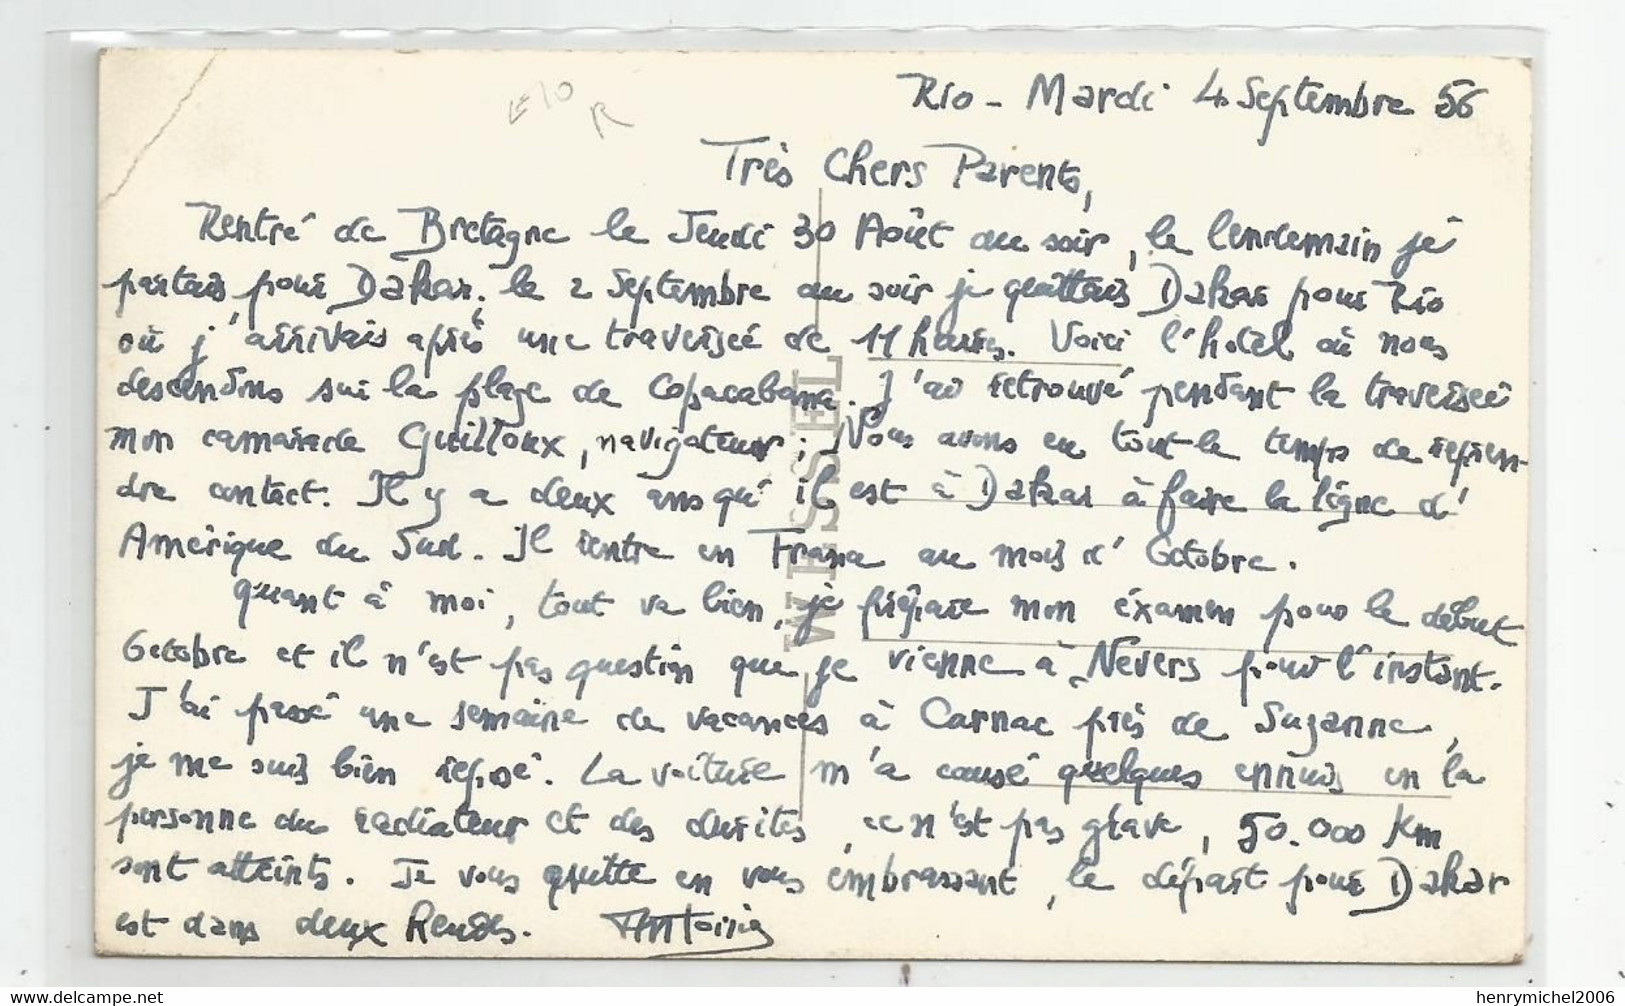 Rio - Mardi 4 Septembre 56
Très Chers Parents,
Rentré de Bretagne le Jeudi 30 Août au soir, le lendemain je
partais pour Dakar. le 2 Septembre au soir je quittais Dakar pour Rio
où j'arrivais après une traversée de 11 heures. Voici l'hotel où nous
descendons sur la plage de Copacabana. J'ai retrouvé pendant la traversée
mon camarade Guilloux, navigateur; Nous avons eu tout le temps de repren-
dre contact. Il y a deux ans qu'il est à Dakar à faire la ligne d'
Amérique du Sud. Il rentre en France au mois d'Octobre.
Quant à moi, tout va bien, je prépare mon éxamen pour le début
Octobre et il n'est pas question que je vienne à Nevers pour l'instant.
J'ai passé une semaine de vacances à Carnac près de Suzanne,
je me suis bien reposé. La voiture m'a causé quelques ennuis en la
personne du radiateur et des durites, ce n'est pas grave, 50.000 Km
sont atteints. Je vous quitte en vous embrassant, le départ pour Dakar
est dans deux heures.
WESSEL
E10
R
henrymichel2006